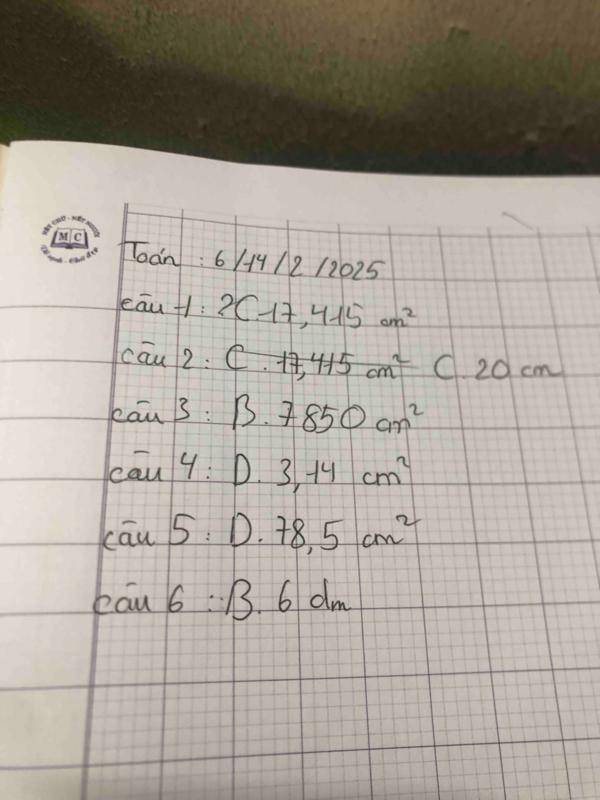 NÉT CHỮ - NẾT NGƯỜI
M C
Toán : 6/14/2/2025
câu 1 : 2C 17,415 cm²
câu 2 : C. 17,415 cm² C. 20 cm
câu 3 : B. 7850 cm²
câu 4 : D. 3,14 cm²
câu 5 : D. 78,5 cm²
câu 6 : B. 6 dm